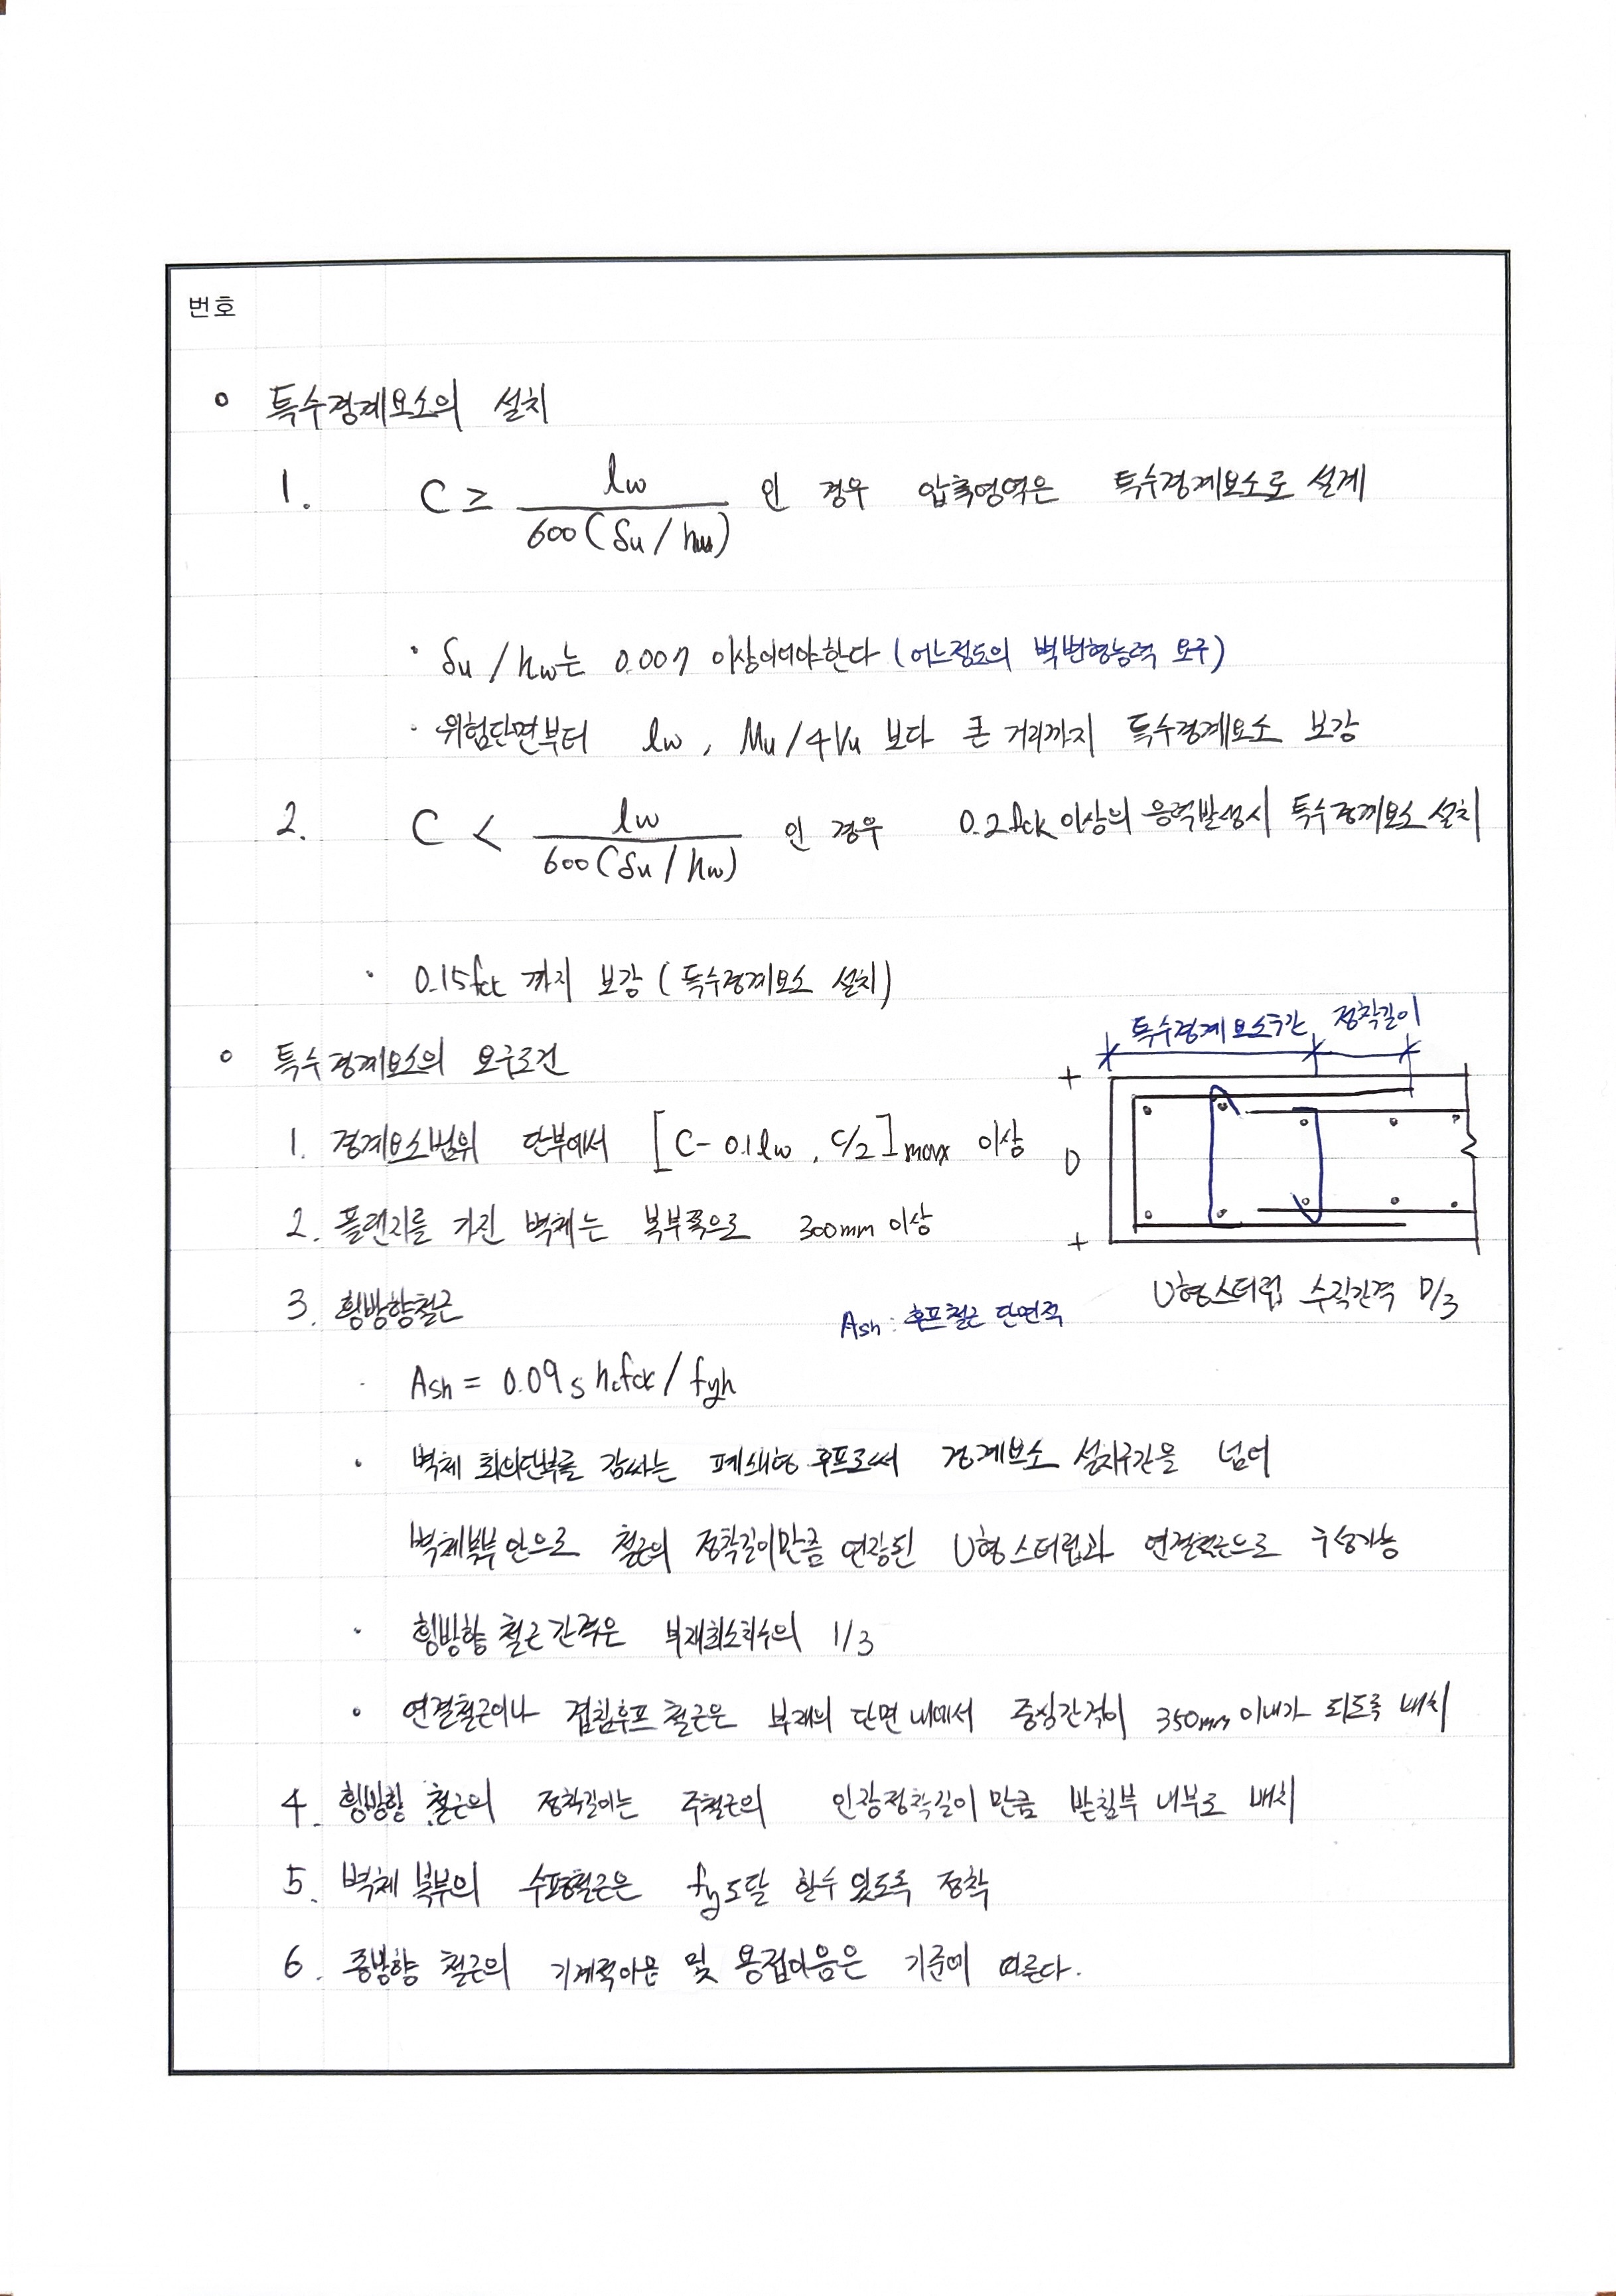 번호
○ 특수경계요소의 설치
1. C ≥ lw / 600(δu/hw) 인 경우 압축영역은 특수경계요소로 설계
· δu/hw는 0.007 이상이어야한다 (어느정도의 벽변형능력 요구)
· 위험단면부터 lw, Mu/4Vu 보다 큰 거리까지 특수경계요소 보강
2. C < lw / 600(δu/hw) 인 경우 0.2fck 이상의 응력발생시 특수경계요소 설치
· 0.15fck 까지 보강 (특수경계요소 설치)
특수경계요소구간 정착길이
○ 특수경계요소의 요구조건
1. 경계요소범위 단부에서 [C - 0.1lw, C/2]max 이상
D
2. 플랜지를 가진 벽체는 복부쪽으로 300mm 이상
U형스터럽 수직간격 D/3
3. 횡방향철근
Ash : 후프철근 단면적
· Ash = 0.09 s hc fck / fyh
· 벽체 회의단부를 감싸는 폐쇄형 후프로써 경계요소 설치구간을 넘어
벽체복부 안으로 철근의 정착길이만큼 연장된 U형스터럽과 연결철근으로 구성가능
· 횡방향 철근간격은 부재최소치수의 1/3
· 연결철근이나 겹침후프 철근은 부재의 단면내에서 중심간격이 350mm 이내가 되도록 배치
4. 횡방향 철근의 정착길이는 주철근의 인장정착길이 만큼 받침부 내부로 배치
5. 벽체 복부의 수평철근은 fy도달 할수 있도록 정착
6. 종방향 철근의 기계적이음 및 용접이음은 기준에 따른다.